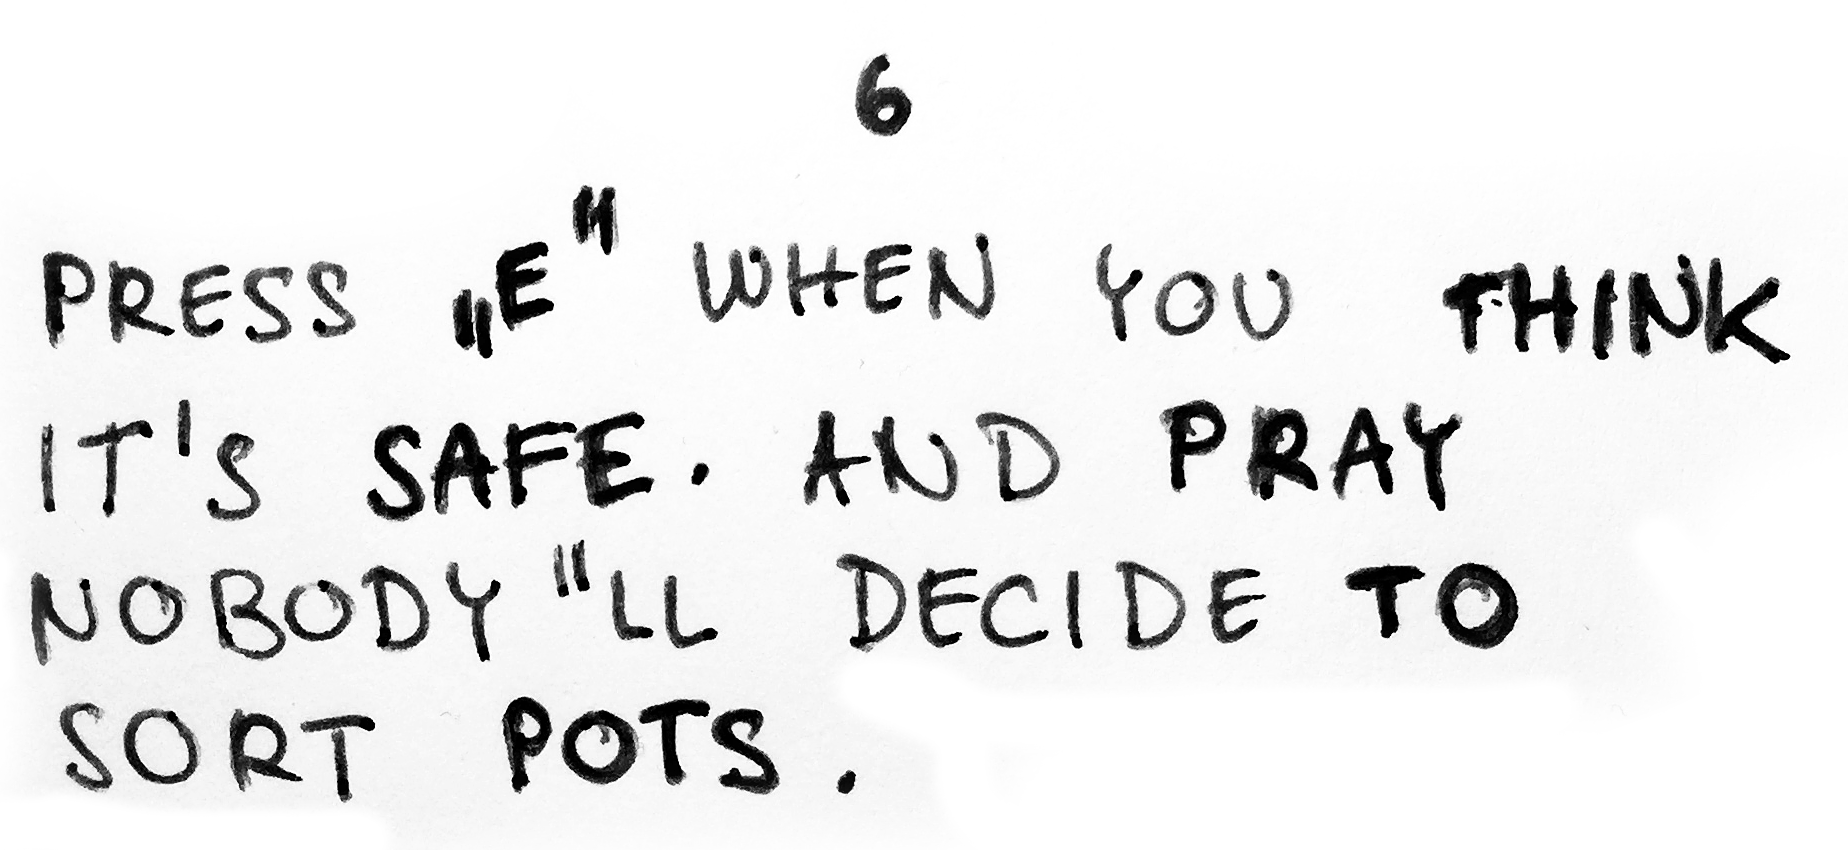 6
PRESS „E" WHEN YOU THINK
IT'S SAFE. AND PRAY
NOBODY "LL DECIDE TO
SORT POTS.